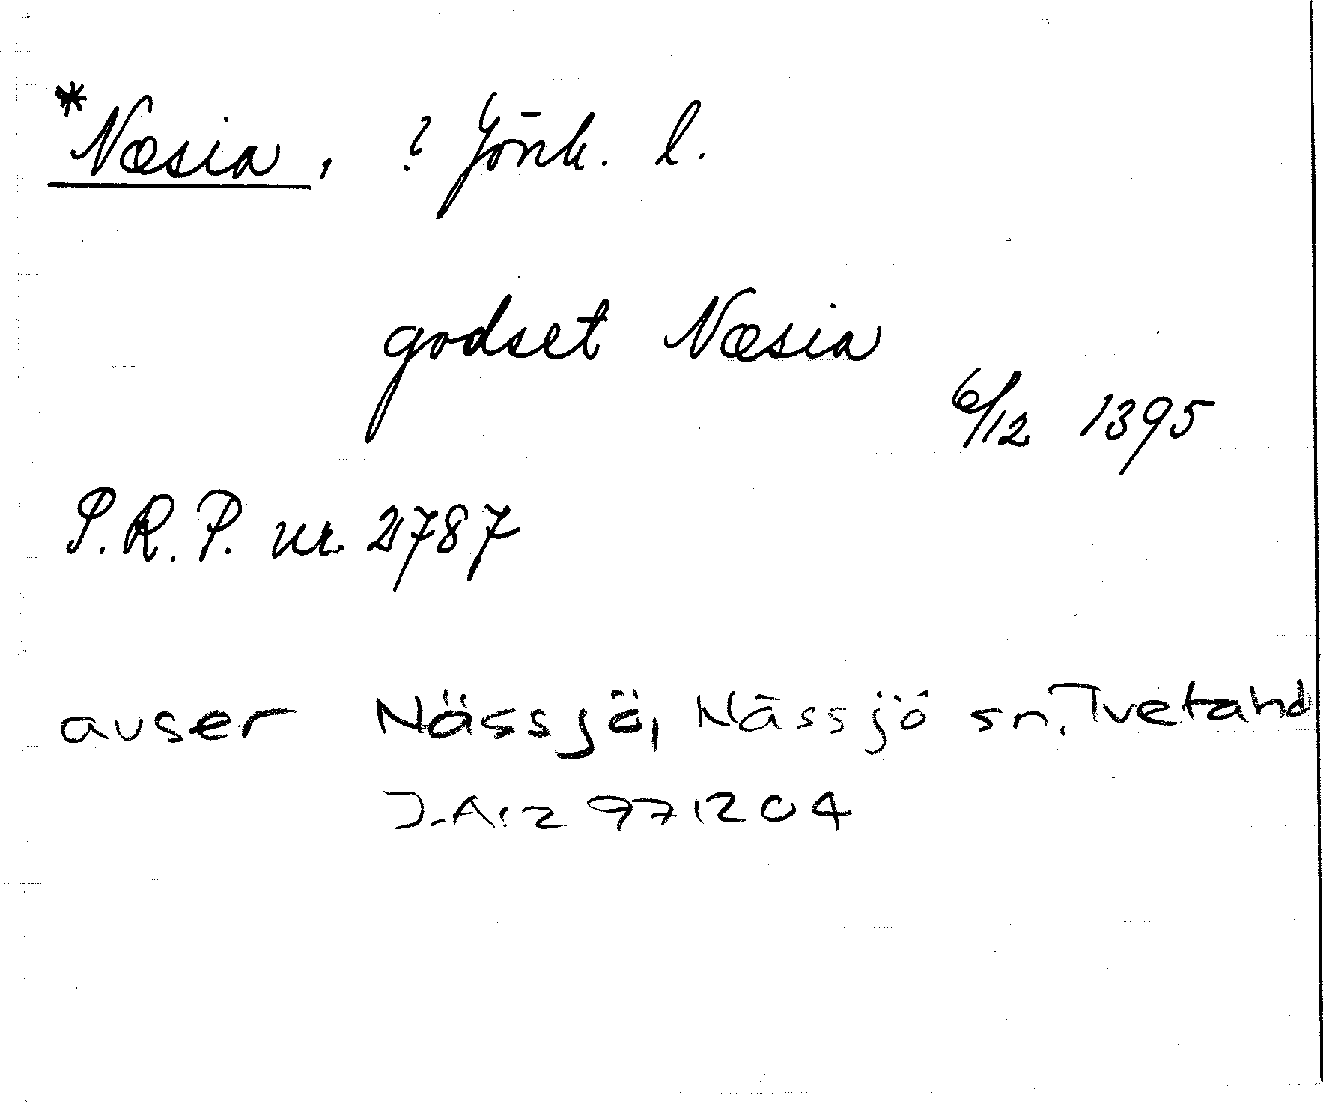 *Næsia, ? Jönk. l.
godset Næsia
6/12 1395
S.R.P. nr 2787
avser Nässjö, Nässjö sn, Tveta hd
J.A:z 971204